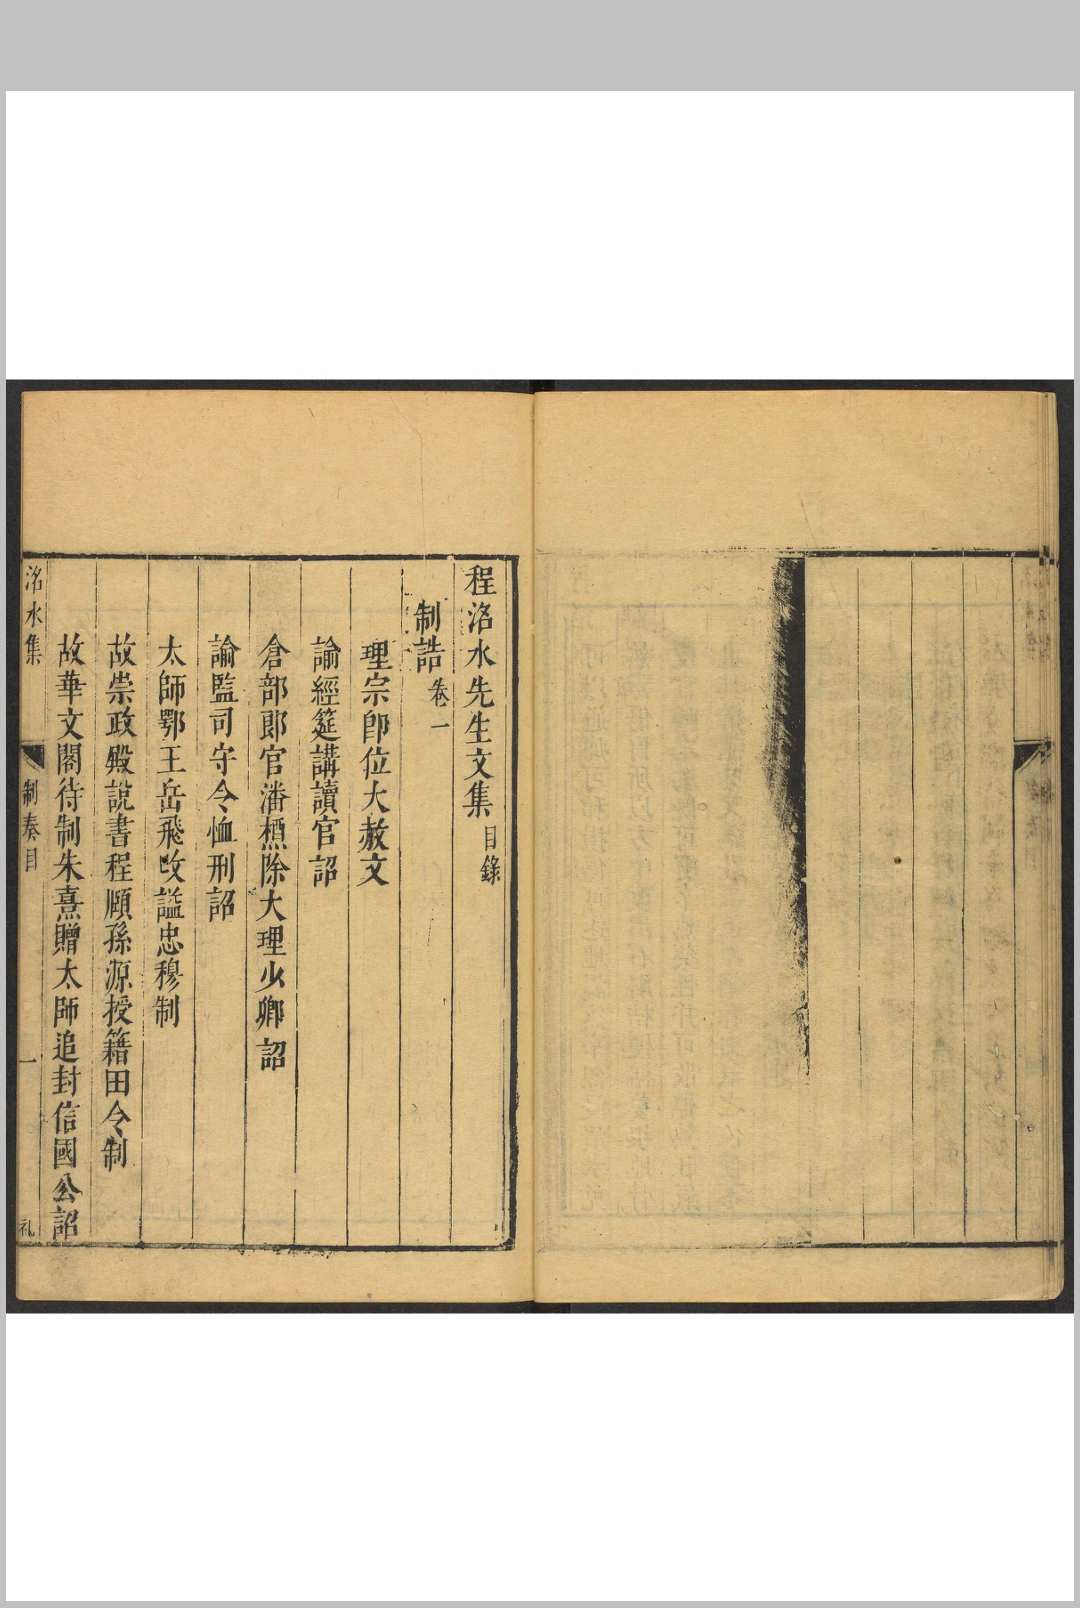 程洺水先生文集目錄
制誥卷一
理宗卽位大赦文
諭經筵講讀官詔
倉部郎官潘檟除大理少卿詔
諭監司守令恤刑詔
太師鄂王岳飛改謚忠穆制
故崇政殿說書程頤孫源授籍田令制
故華文閣待制朱熹贈太師追封信國公詔
洺水集
制奏目
一
礼